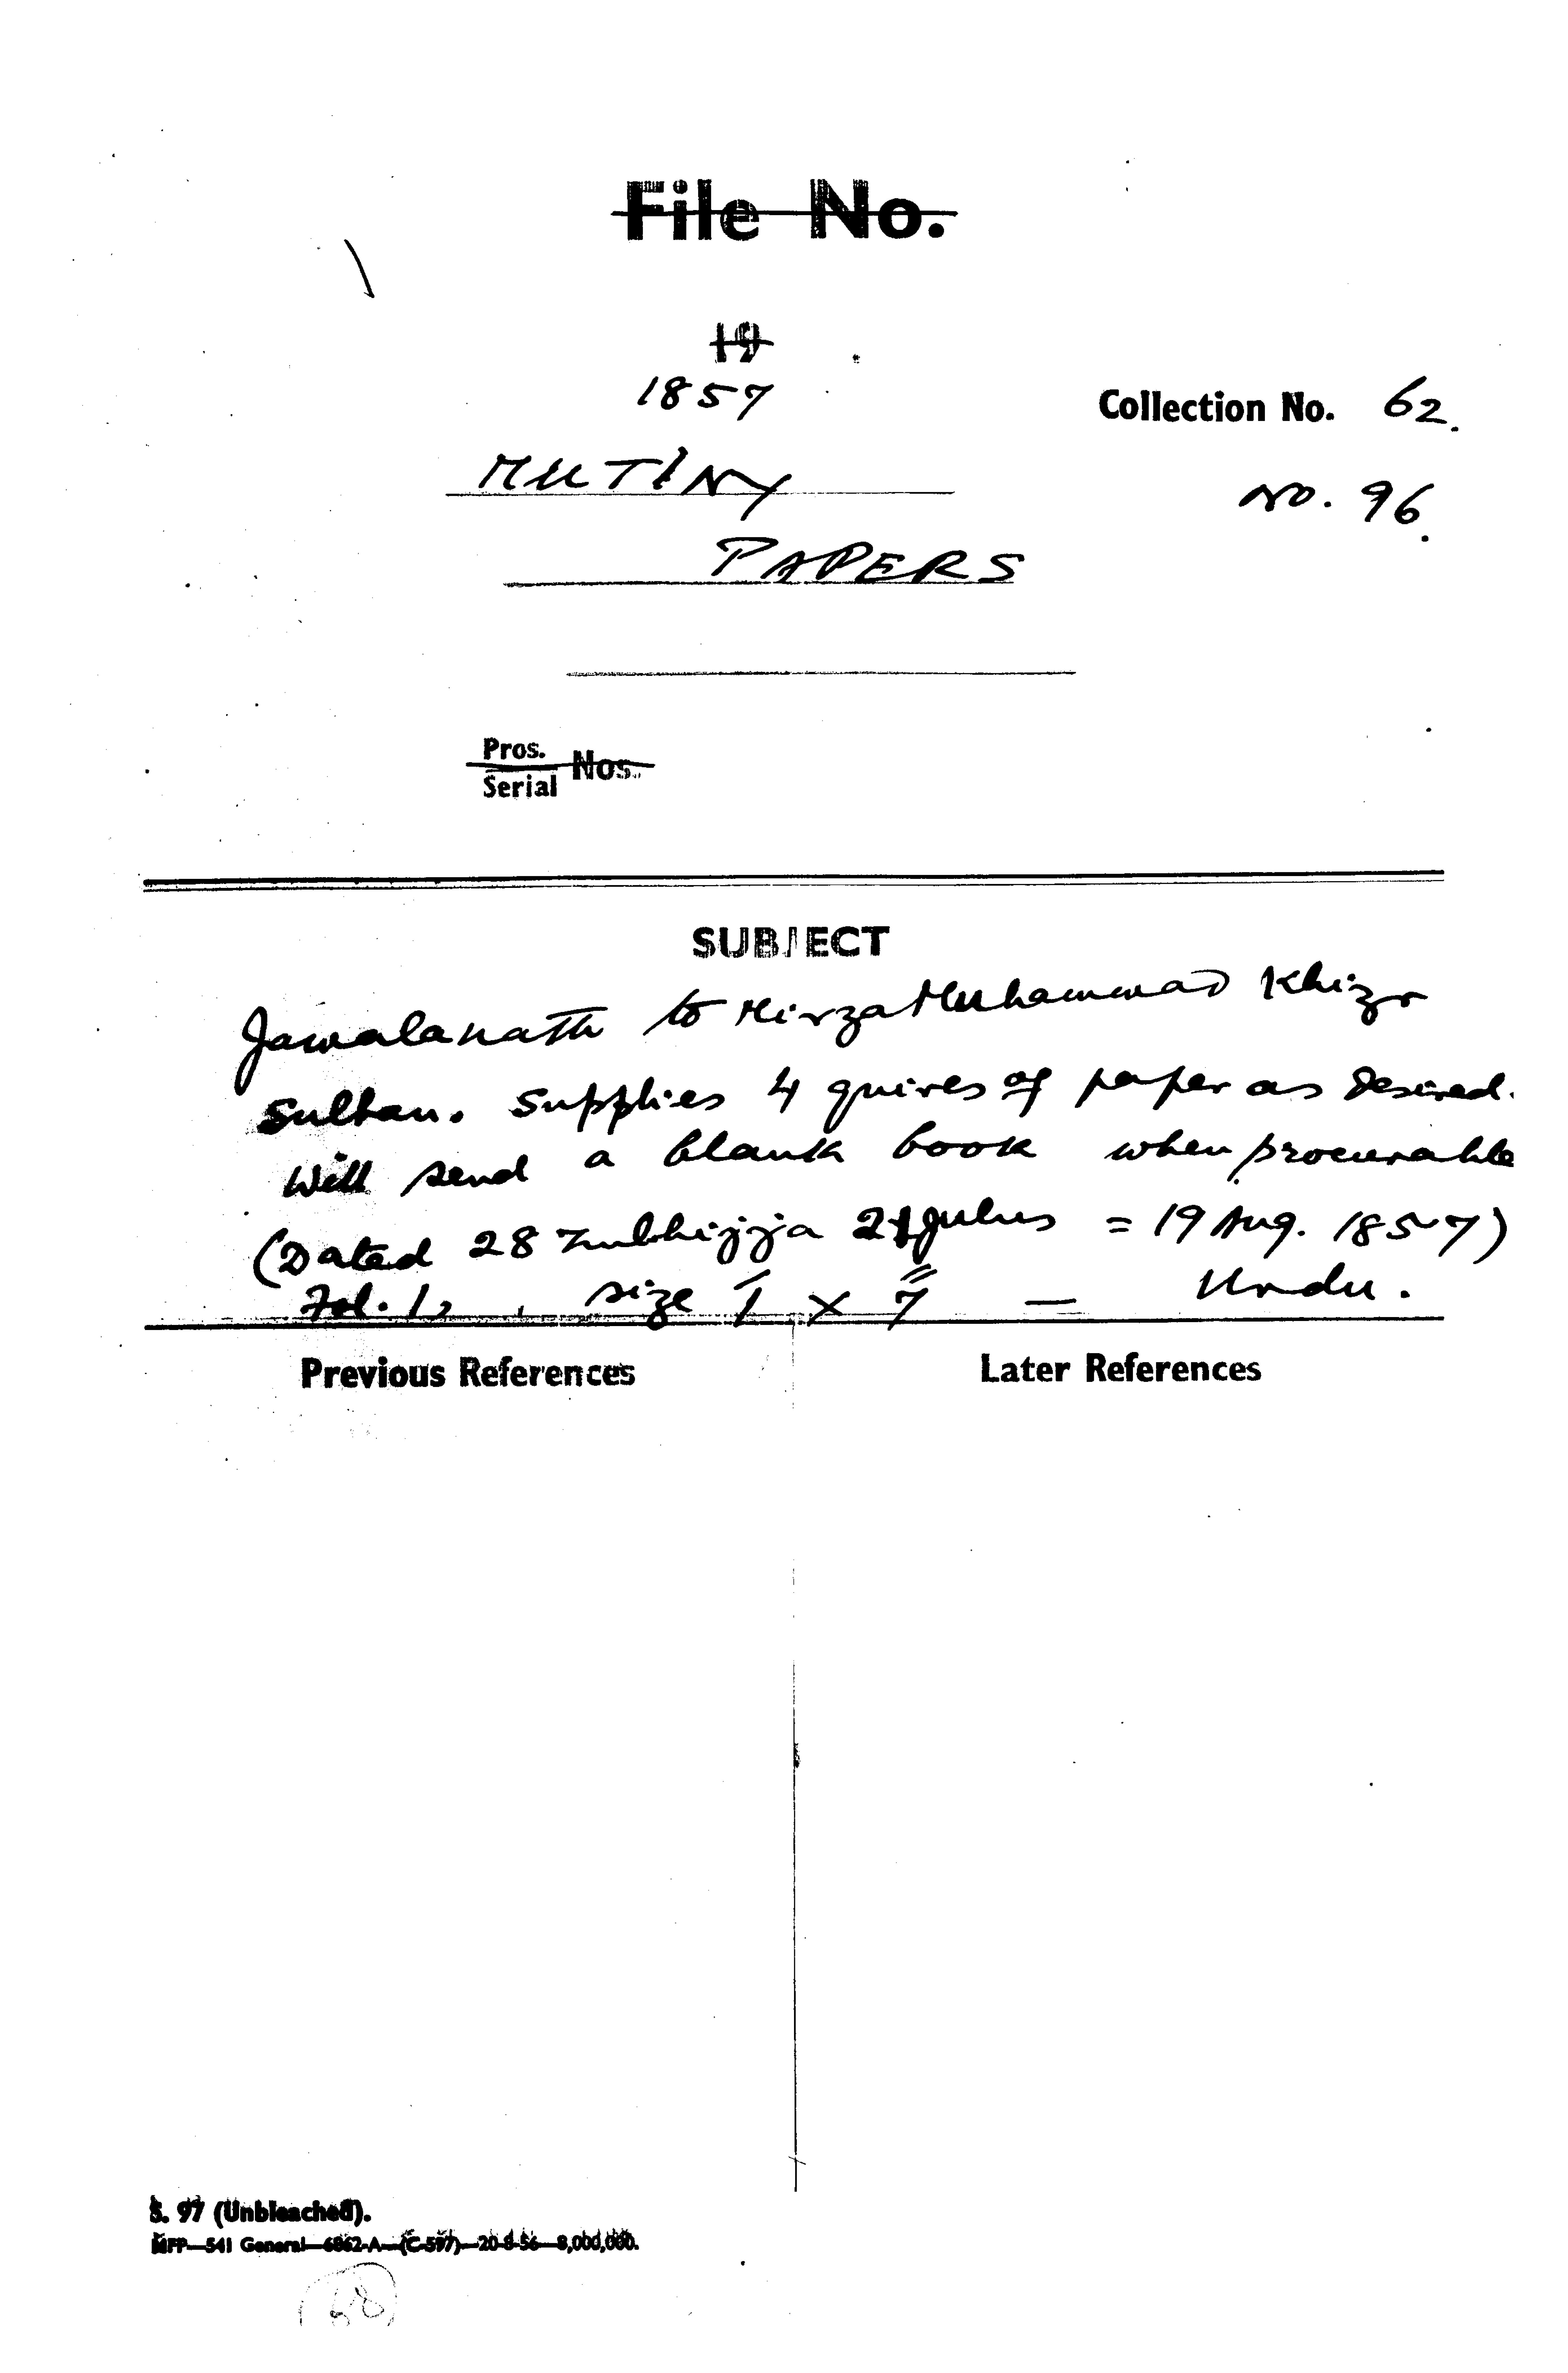 File No.
19
1857
Collection No. 62.
MUTINY
No. 96.
PAPERS
Pros.
Serial Nos.
SUBJECT
Jawalanath to Mirza Muhammad Khizr
Sultan. Supplies 4 quires of paper as desired.
Will send a blank book when procurable
(Dated 28 Zulhijja 21 Julus = 19 Aug. 1857)
Fol. 1, size × 7" — Urdu.
Previous References
Later References
S. 97 (Unbleached).
MFP—541 General—6862-A—(C-597)—20-8-56—8,000,000.